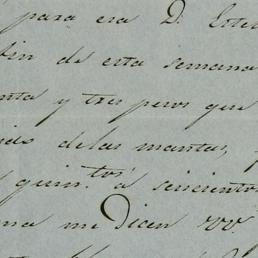 para esa D. Este
fin de esta semana
nta y tres pesos que
de las mantas,
quin.tos á seiscientos
me dicen VV